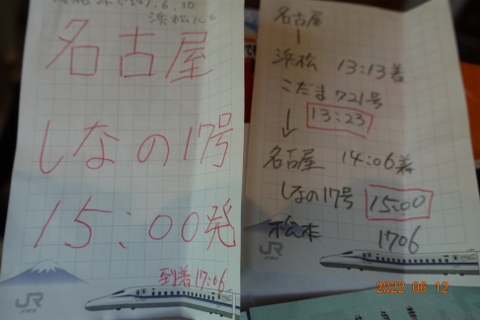 6.10
浜松
名古屋
しなの17号
15:00発
到着17:06
JR
名古屋
浜松 13:13着
こだま721号
13:23
名古屋 14:06着
しなの17号 15:00
松本 1706
JR
2022 06 12